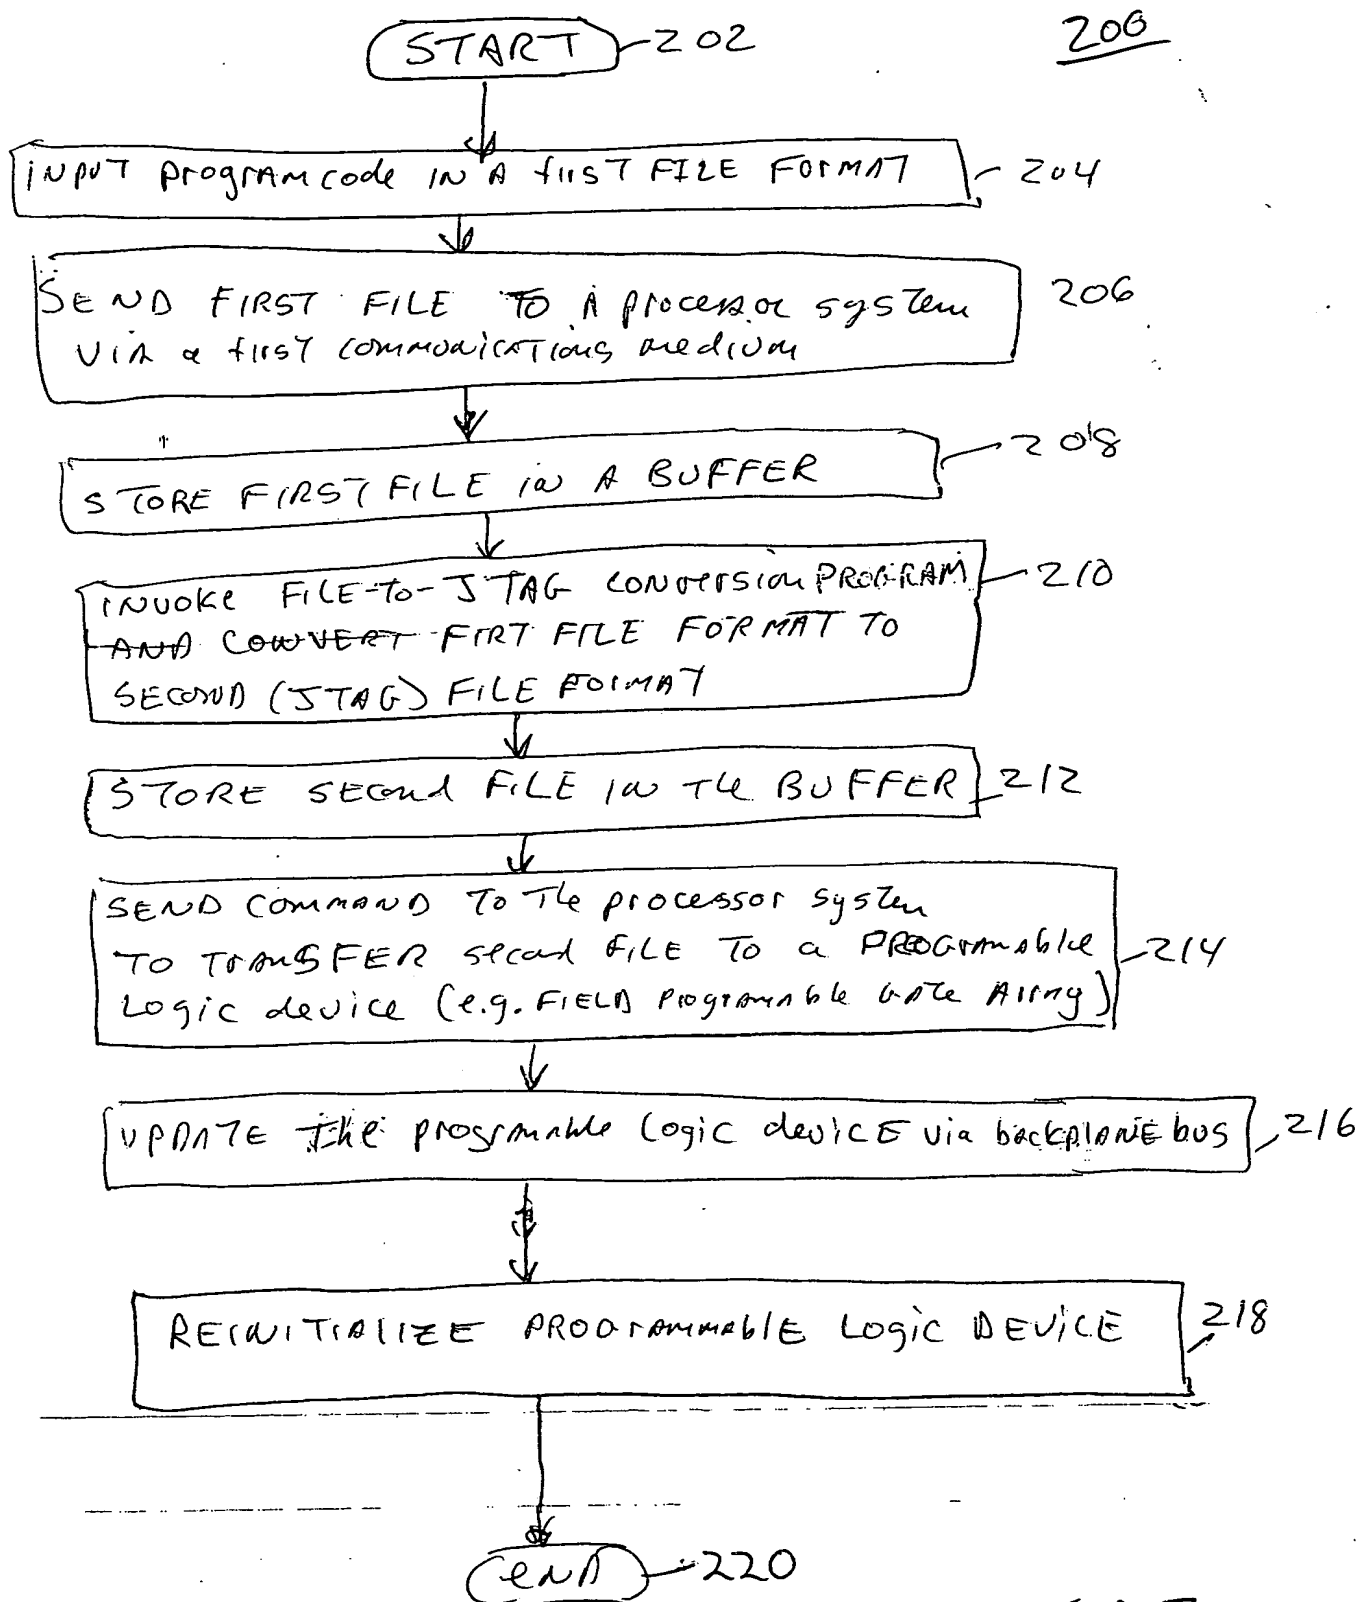 START 202
200
INPUT PROGRAM CODE IN A FIRST FILE FORMAT 204
SEND FIRST FILE TO A PROCESSOR SYSTEM 206
VIA a FIRST COMMUNICATIONS MEDIUM
STORE FIRST FILE in A BUFFER 208
INVOKE FILE-TO-JTAG CONVERSION PROGRAM 210
AND CONVERT FIRT FILE FORMAT TO
SECOND (JTAG) FILE FORMAT
STORE SECOND FILE IN THE BUFFER 212
SEND COMMAND TO THE processor system
TO TRANSFER secod FILE TO a PROGRAMABLE 214
Logic device (e.g. FIELD Programable GATE Array)
UPDATE the programable Logic device via backplane bus 216
REINITIALIZE PROGRAMMABLE LOGIC DEVICE 218
END 220